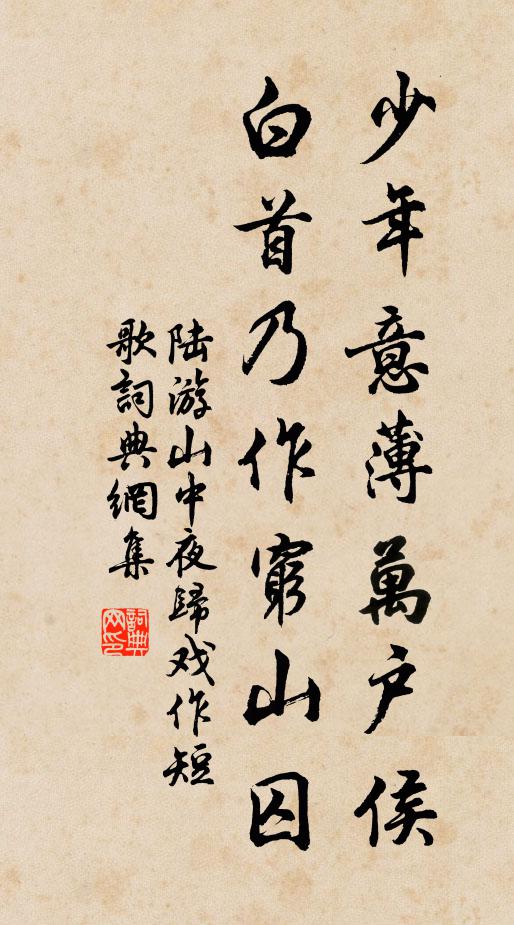 少年意薄萬户侯
白首乃作窮山囚
陆游山中夜歸戏作短
歌詞典網集
詞典
网印